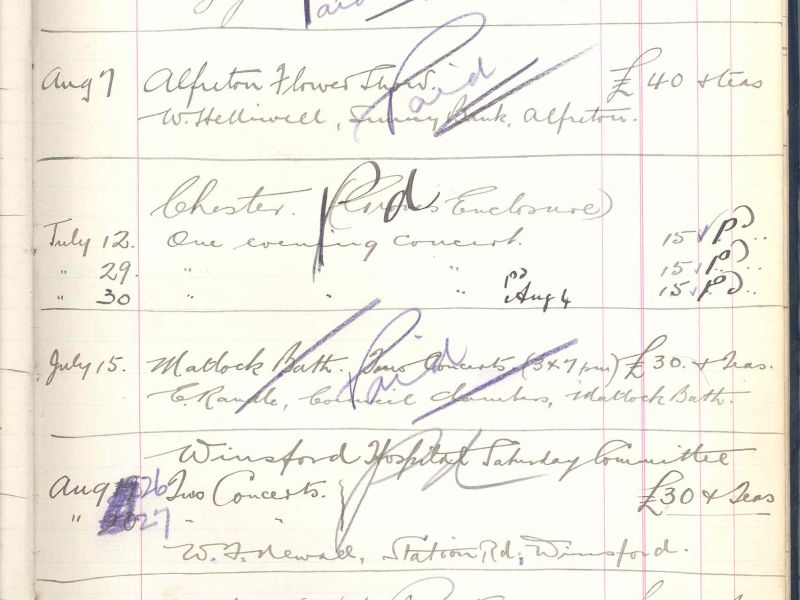 Paid
Aug 7 Alfreton Flower Show. £40 & teas
Paid
W. Helliwell, Sunny Bank, Alfreton.
Chester. (Groves Enclosure)
Pd
July 12. One evening concert. 15 ✓ pd ..
" 29. " " 15 ✓ pd ..
" 30 " " pd Aug 4 15 ✓ pd ..
July 15. Matlock Bath. Two Concerts (3 & 7 pm) £30. & Teas.
Paid
E. Randle, Council Chambers, Matlock Bath.
Winsford Hospital Saturday Committee
Aug 26 Two Concerts. £30 & Teas
" 27 " "
W. F. Newall, Station Rd, Winsford.